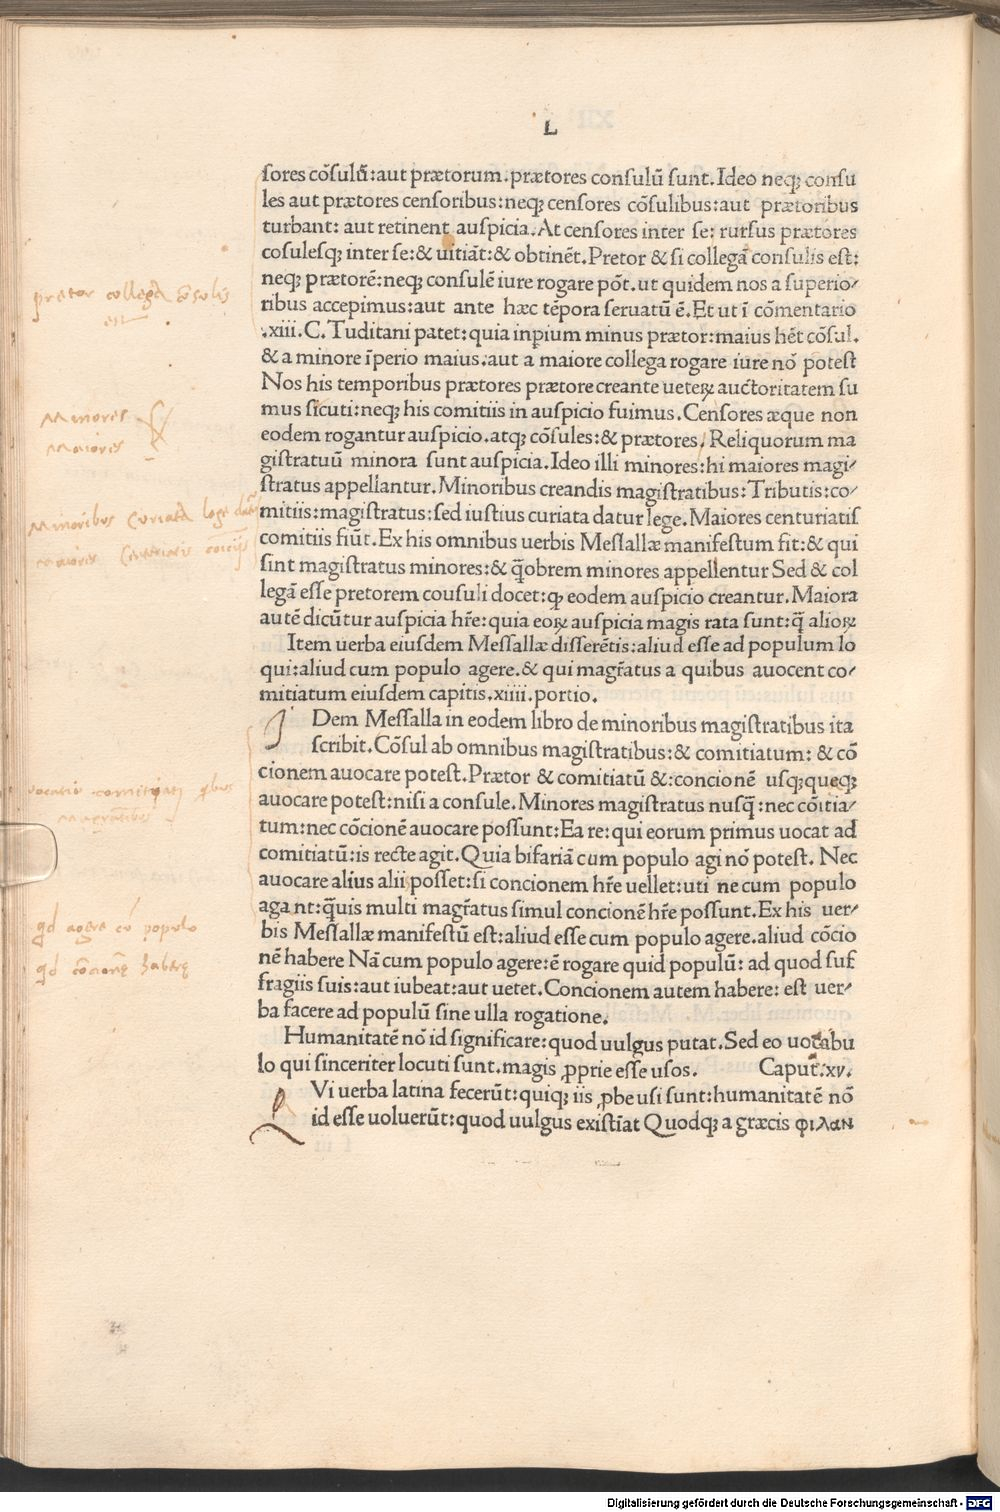 L
ſores cõſulũ:aut prætorum.prætores conſulũ ſunt.Ideo neqꝫ conſu
les aut prætores cenſoribus:neqꝫ cenſores cõſulibus:aut prætoribus
turbant: aut retinent auſpicia.At cenſores inter ſe: rurſus prætores
coſuleſqꝫ inter ſe:& uitiãt:& obtinẽt.Pretor & ſi collegã conſulis eſt:
neqꝫ prætorẽ:neqꝫ conſulẽ iure rogare põt.ut quidem nos a ſuperio/
ribus accepimus:aut ante hæc tẽpora ſeruatũ ẽ.Et ut ĩ cõmentario
.xiii.C.Tuditani patet:quia inpium minus prætor:maius hẽt cõſul.
& a minore ĩperio maius.aut a maiore collega rogare iure nõ poteſt
Nos his temporibus prætores prætore creante ueteꝝ auctoritatem ſu
mus ſicuti:neqꝫ his comitiis in auſpicio fuimus.Cenſores æque non
eodem rogantur auſpicio.atqꝫ cõſules:& prætores.Reliquorum ma
giſtratuũ minora ſunt auſpicia.Ideo illi minores:hi maiores magi/
ſtratus appellantur.Minoribus creandis magiſtratibus:Tributis:co/
mitiis:magiſtratus:ſed iuſtius curiata datur lege.Maiores centuriatiſ
comitiis fiũt.Ex his omnibus uerbis Meſſallæ manifeſtum fit:& qui
ſint magiſtratus minores:& q̃obrem minores appellentur Sed & col
legã eſſe pretorem couſuli docet:ꝙ eodem auſpicio creantur.Maiora
autẽ dicũtur auſpicia hr̃e:quia eoꝝ auſpicia magis rata ſunt:q̃ alioꝝ
Item uerba eiuſdem Meſſallæ diſſerẽtis:aliud eſſe ad populum lo
qui:aliud cum populo agere.& qui magr̃atus a quibus auocent co/
mitiatum eiuſdem capitis.xiiii.portio.
I Dem Meſſalla in eodem libro de minoribus magiſtratibus ita
ſcribit.Cõſul ab omnibus magiſtratibus:& comitiatum: & cõ
cionem auocare poteſt.Prætor & comitiatũ &:concionẽ uſqꝫqueqꝫ
auocare poteſt:niſi a conſule.Minores magiſtratus nuſq̃:nec cõitia/
tum:nec cõcionẽ auocare poſſunt:Ea re:qui eorum primus uocat ad
comitiatũ:is recte agit.Quia bifariã cum populo agi nõ poteſt. Nec
auocare alius alii poſſet:ſi concionem hr̃e uellet:uti ne cum populo
aga nt:q̃uis multi magr̃atus ſimul concionẽ hr̃e poſſunt.Ex his uer/
bis Meſſallæ manifeſtũ eſt:aliud eſſe cum populo agere.aliud cõcio
nẽ habere Nã cum populo agere:ẽ rogare quid populũ: ad quod ſuf
fragiis ſuis:aut iubeat:aut uetet.Concionem autem habere: eſt uer/
ba facere ad populũ ſine ulla rogatione.
Humanitatẽ nõ id ſignificare:quod uulgus putat.Sed eo uocabu
lo qui ſinceriter locuti ſunt.magis ꝓprie eſſe uſos. Caput.xv.
Q Vi uerba latina fecerũt:quiqꝫ iis ꝓbe uſi ſunt:humanitatẽ nõ
id eſſe uoluerũt:quod uulgus exiſtĩat Quodqꝫ a græcis φιλαν
pretor collega cõsolis
est
Minores
Maiores
Minoribus Curiata lege datur
maiores Centuriatis comicijs
vocatio comitiati qͥbus
magr̃atibus
qd agere cũ populo
qd concionẽ habere
Digitalisierung gefördert durch die Deutsche Forschungsgemeinschaft - DFG